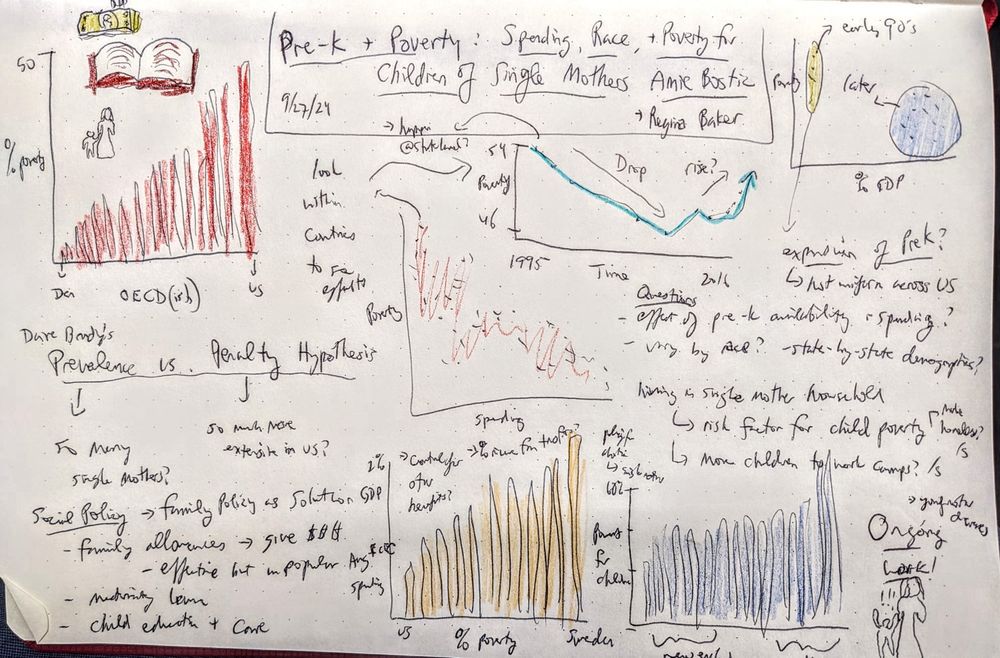 Pre-k + Poverty: Spending, Race, + Poverty for
Children of Single Mothers Amie Bostic
9/27/24
+ Regina Baker
50
% poverty
Den
OECD(ish)
US
look
within
Countries
to see
effects
@state level?
54
Poverty
46
Drop
rise?
1995
Time
2016
early 90's
Poverty
later
% GDP
expansion of PreK?
↳ not uniform across US
Questions
- effect of pre-k availability + spending?
- vary by race? - state-by-state demographics?
Poverty
spending
Dave Brady's
Prevalence vs. Penalty Hypothesis
so many
single mothers?
so much more
extensive in US?
Social Policy → family policy as solution
- family allowances → give $$$
- effective but unpopular
- maternity leave
- child education + care
GDP
2%
→ Control for
other
benefits?
Avg ECEC
spending
US
% poverty
Sweden
60%
for
children
living in single mother household
↳ risk factor for child poverty
make
homeless?
/s
↳ more children to work camps? /s
Ongoing
work!